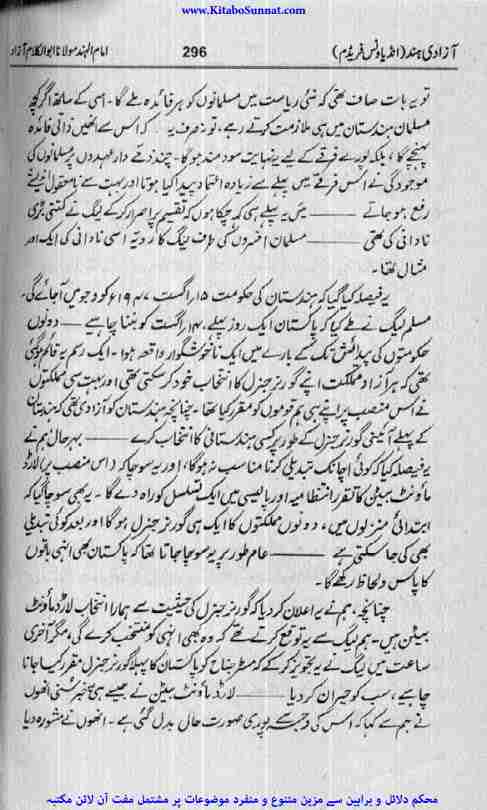 www.KitaboSunnat.com
آزادی ہند (انڈیا ونس فریڈم) 296 امام الہند مولانا ابوالکلام آزاد
تو یہ بات صاف تھی کہ نئی ریاست میں مسلمانوں کو ہر فائدہ ملے گا۔ اسی کے ساتھ اگر کچھ
مسلمان ہندستان میں ہی ملازمت کرتے رہے، تو نہ صرف یہ کہ اس سے انھیں ذاتی فائدہ
پہنچے گا، بلکہ پورے فرقے کے لیے یہ نہایت سود مند ہوگا۔ چند ذمے دار عہدوں پر مسلمانوں کی
موجودگی نے اس فرقے میں پہلے سے زیادہ اعتماد پیدا کیا ہوتا اور بہت سے نامعقول اندیشے
رفع ہو جاتے ——— میں یہ پہلے ہی کہہ چکا ہوں کہ تقسیم پر اصرار کر کے لیگ نے کتنی بڑی
نادانی کی تھی ——— مسلمان افسروں کی طرف لیگ کا رویہ اسی نادانی کی ایک اور
مثال تھا۔
یہ فیصلہ کیا گیا کہ ہندستان کی حکومت ۱۵ اگست ۱۹۴۷ء کو وجود میں آجائے گی۔
مسلم لیگ نے طے کیا کہ پاکستان ایک روز پہلے، ۱۴ اگست کو بننا چاہیے —— دونوں
حکومتوں کی پیدائش تک کے بارے میں ایک ناخوشگوار واقعہ ہوا۔ ایک رسم یہ قائم ہوگئی
تھی کہ ہر آزاد مملکت اپنے گورنر جنرل کا انتخاب خود کر سکتی تھی اور بہت سی مملکتوں
نے اس منصب پر اپنے ہی ہم قوموں کو مقرر کیا تھا۔ چنانچہ ہندستان کو آزادی تھی کہ ہندستان
کے پہلے آئینی گورنر جنرل کے طور پر کسی ہندستانی کا انتخاب کرے —— بہرحال ہم نے
یہ فیصلہ کیا کہ کوئی اچانک تبدیلی کرنا مناسب نہ ہوگا، اور یہ سوچا کہ (اس منصب پر) لارڈ
ماؤنٹ بیٹن کا تقرر انتظامیہ اور پالیسی میں ایک تسلسل کو راہ دے گا۔ یہ بھی سوچا گیا کہ
ابتدائی منزلوں میں، دونوں مملکتوں کا ایک ہی گورنر جنرل ہوگا اور بعد کو کوئی تبدیلی
بھی کی جا سکتی ہے ——— عام طور پر یہ سوچا جاتا تھا کہ پاکستان بھی انہی باتوں
کا پاس و لحاظ رکھے گا۔
چنانچہ، ہم نے یہ اعلان کر دیا کہ گورنر جنرل کی حیثیت سے ہمارا انتخاب لارڈ ماؤنٹ
بیٹن ہیں۔ ہم لیگ سے یہ توقع کرتے تھے کہ وہ بھی انہی کو منتخب کرے گی، مگر آخری
ساعت میں لیگ نے یہ تجویز کر کے کہ مسٹر جناح کو پاکستان کا پہلا گورنر جنرل مقرر کیا جانا
چاہیے، سب کو حیران کر دیا ——— لارڈ ماؤنٹ بیٹن نے جیسے ہی یہ خبر سنی انھوں
نے ہم سے کہا کہ اس کی وجہ سے پوری صورت حال بدل گئی ہے۔ انھوں نے مشورہ دیا
محکم دلائل و براہین سے مزین متنوع و منفرد موضوعات پر مشتمل مفت آن لائن مکتبہ